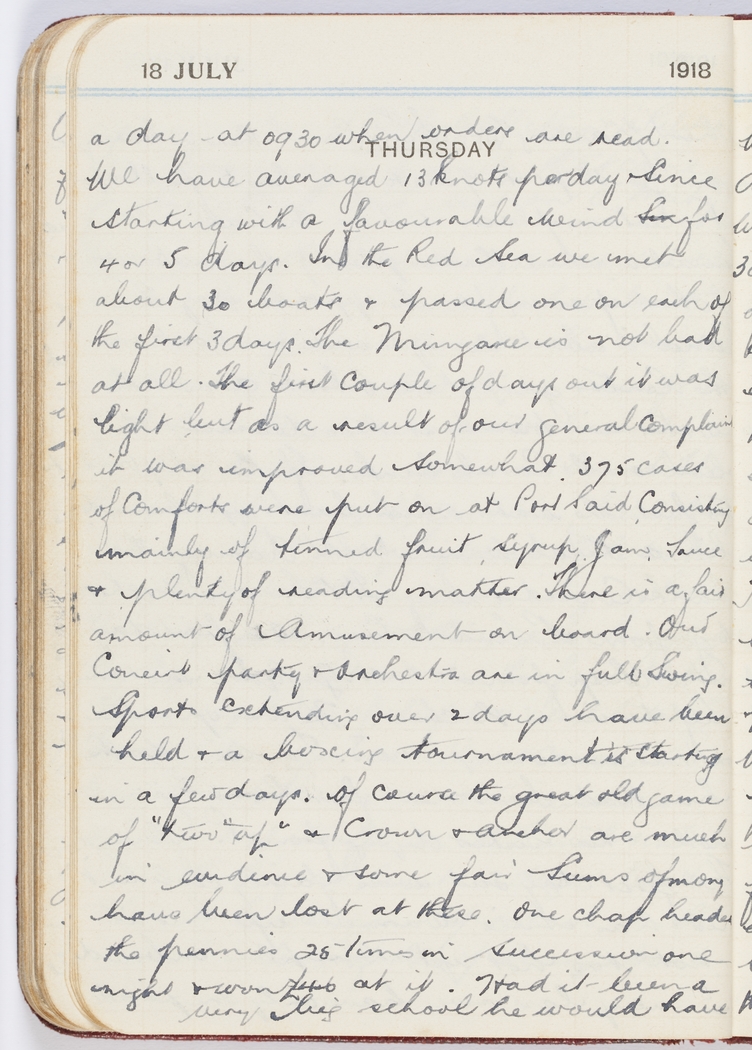 18 JULY 1918
THURSDAY
a day at 0930 when orders are read.
We have averaged 13 knots per day & since
starting with a favourable wind for
4 or 5 days. In the Red Sea we met
about 30 boats & passed one on each of
the first 3 days. The Mungaree is not bad
at all. The first couple of days out it was
light but as a result of our general Complain
it was improved somewhat. 375 cases
of Comforts were put on at Port Said Consisting
mainly of tinned fruit, syrup, Jam, Sauce
& plenty of reading matter. There is a fair
amount of Amusement on board. Our
Concert party & Orchestra are in full Swing.
Sports extending over 2 days have been
held & a boxing tournament is starting
in a few days. Of course the great old game
of "two up" & Crown & anchor are much
in evidence & some fair Sums of mony
have been lost at these. One chap headed
the pennies 25 times in succession one
night & won at it. Had it been a
very big school he would have